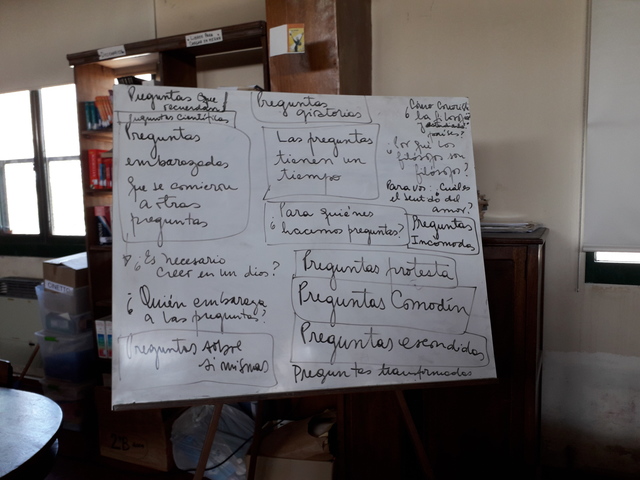 Preguntas que
recuerdan
Preguntas científicas
Preguntas
embarazadas
que se comieron
a otras
preguntas
¿Es necesario
creer en un dios?
¿Quién embaraza
a las preguntas?
Preguntas sobre
si mismas
Preguntas
giratorias
Las preguntas
tienen un
tiempo
¿Para quiénes
hacemos preguntas?
Preguntas
Incomodas
Preguntas protesta
Preguntas Comodín
Preguntas escondidas
Preguntas transformadas
la filosofía
¿Por qué los
filósofos son
filósofos?
Para vos: Cuál es
el sentido del
amor?